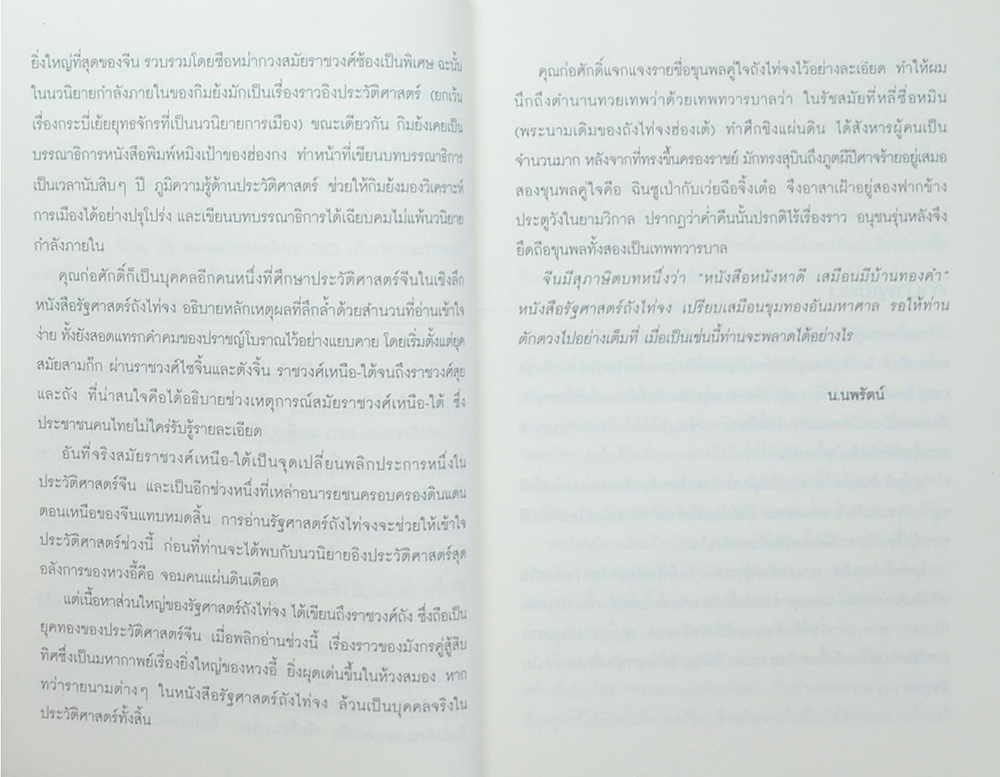 ยิ่งใหญ่ที่สุดของจีน รวบรวมโดยซือหม่ากวงสมัยราชวงศ์ซ้องเป็นพิเศษ ฉะนั้น
ในนวนิยายกำลังภายในของกิมย้งมักเป็นเรื่องราวอิงประวัติศาสตร์ (ยกเว้น
เรื่องกระบี่เย้ยยุทธจักรที่เป็นนวนิยายการเมือง) ขณะเดียวกัน กิมย้งเคยเป็น
บรรณาธิการหนังสือพิมพ์หมิงเป้าของฮ่องกง ทำหน้าที่เขียนบทบรรณาธิการ
เป็นเวลานับสิบๆ ปี ภูมิความรู้ด้านประวัติศาสตร์ ช่วยให้กิมย้งมองวิเคราะห์
การเมืองได้อย่างปรุโปร่ง และเขียนบทบรรณาธิการได้เฉียบคมไม่แพ้นวนิยาย
กำลังภายใน
คุณก่อศักดิ์ก็เป็นบุคคลอีกคนหนึ่งที่ศึกษาประวัติศาสตร์จีนในเชิงลึก
หนังสือรัฐศาสตร์ถังไท่จง อธิบายหลักเหตุผลที่ลึกล้ำด้วยสำนวนที่อ่านเข้าใจ
ง่าย ทั้งยังสอดแทรกคำคมของปราชญ์โบราณไว้อย่างแยบคาย โดยเริ่มตั้งแต่ยุค
สมัยสามก๊ก ผ่านราชวงศ์ไซจิ้นและตังจิ้น ราชวงศ์เหนือ-ใต้จนถึงราชวงศ์สุย
และถัง ที่น่าสนใจคือได้อธิบายช่วงเหตุการณ์สมัยราชวงศ์เหนือ-ใต้ ซึ่ง
ประชาชนคนไทยไม่ใคร่รับรู้รายละเอียด
อันที่จริงสมัยราชวงศ์เหนือ-ใต้เป็นจุดเปลี่ยนพลิกประการหนึ่งใน
ประวัติศาสตร์จีน และเป็นอีกช่วงหนึ่งที่เหล่าอนารยชนครอบครองดินแดน
ตอนเหนือของจีนแทบหมดสิ้น การอ่านรัฐศาสตร์ถังไท่จงจะช่วยให้เข้าใจ
ประวัติศาสตร์ช่วงนี้ ก่อนที่ท่านจะได้พบกับนวนิยายอิงประวัติศาสตร์สุด
อลังการของหวงอี้คือ จอมคนแผ่นดินเดือด
แต่เนื้อหาส่วนใหญ่ของรัฐศาสตร์ถังไท่จง ได้เขียนถึงราชวงศ์ถัง ซึ่งถือเป็น
ยุคทองของประวัติศาสตร์จีน เมื่อพลิกอ่านช่วงนี้ เรื่องราวของมังกรคู่สู้สิบ
ทิศซึ่งเป็นมหากาพย์เรื่องยิ่งใหญ่ของหวงอี้ ยิ่งผุดเด่นขึ้นในห้วงสมอง หาก
ทว่ารายนามต่างๆ ในหนังสือรัฐศาสตร์ถังไท่จง ล้วนเป็นบุคคลจริงใน
ประวัติศาสตร์ทั้งสิ้น
คุณก่อศักดิ์แจกแจงรายชื่อขุนพลคู่ใจถังไท่จงไว้อย่างละเอียด ทำให้ผม
นึกถึงตำนานทวยเทพว่าด้วยเทพทวารบาลว่า ในรัชสมัยที่หลี่ซื่อหมิน
(พระนามเดิมของถังไท่จงฮ่องเต้) ทำศึกชิงแผ่นดิน ได้สังหารผู้คนเป็น
จำนวนมาก หลังจากที่ทรงขึ้นครองราชย์ มักทรงสุบินถึงภูตผีปีศาจร้ายอยู่เสมอ
สองขุนพลคู่ใจคือ ฉินซูเป่ากับเว่ยฉือจิ้งเต๋อ จึงอาสาเฝ้าอยู่สองฟากข้าง
ประตูวังในยามวิกาล ปรากฏว่าค่ำคืนนั้นปรกติไร้เรื่องราว อนุชนรุ่นหลังจึง
ยึดถือขุนพลทั้งสองเป็นเทพทวารบาล
จีนมีสุภาษิตบทหนึ่งว่า "หนังสือหนังหาดี เสมือนมีบ้านทองคำ"
หนังสือรัฐศาสตร์ถังไท่จง เปรียบเสมือนขุมทองอันมหาศาล รอให้ท่าน
ตักตวงไปอย่างเต็มที่ เมื่อเป็นเช่นนี้ท่านจะพลาดได้อย่างไร
น.นพรัตน์